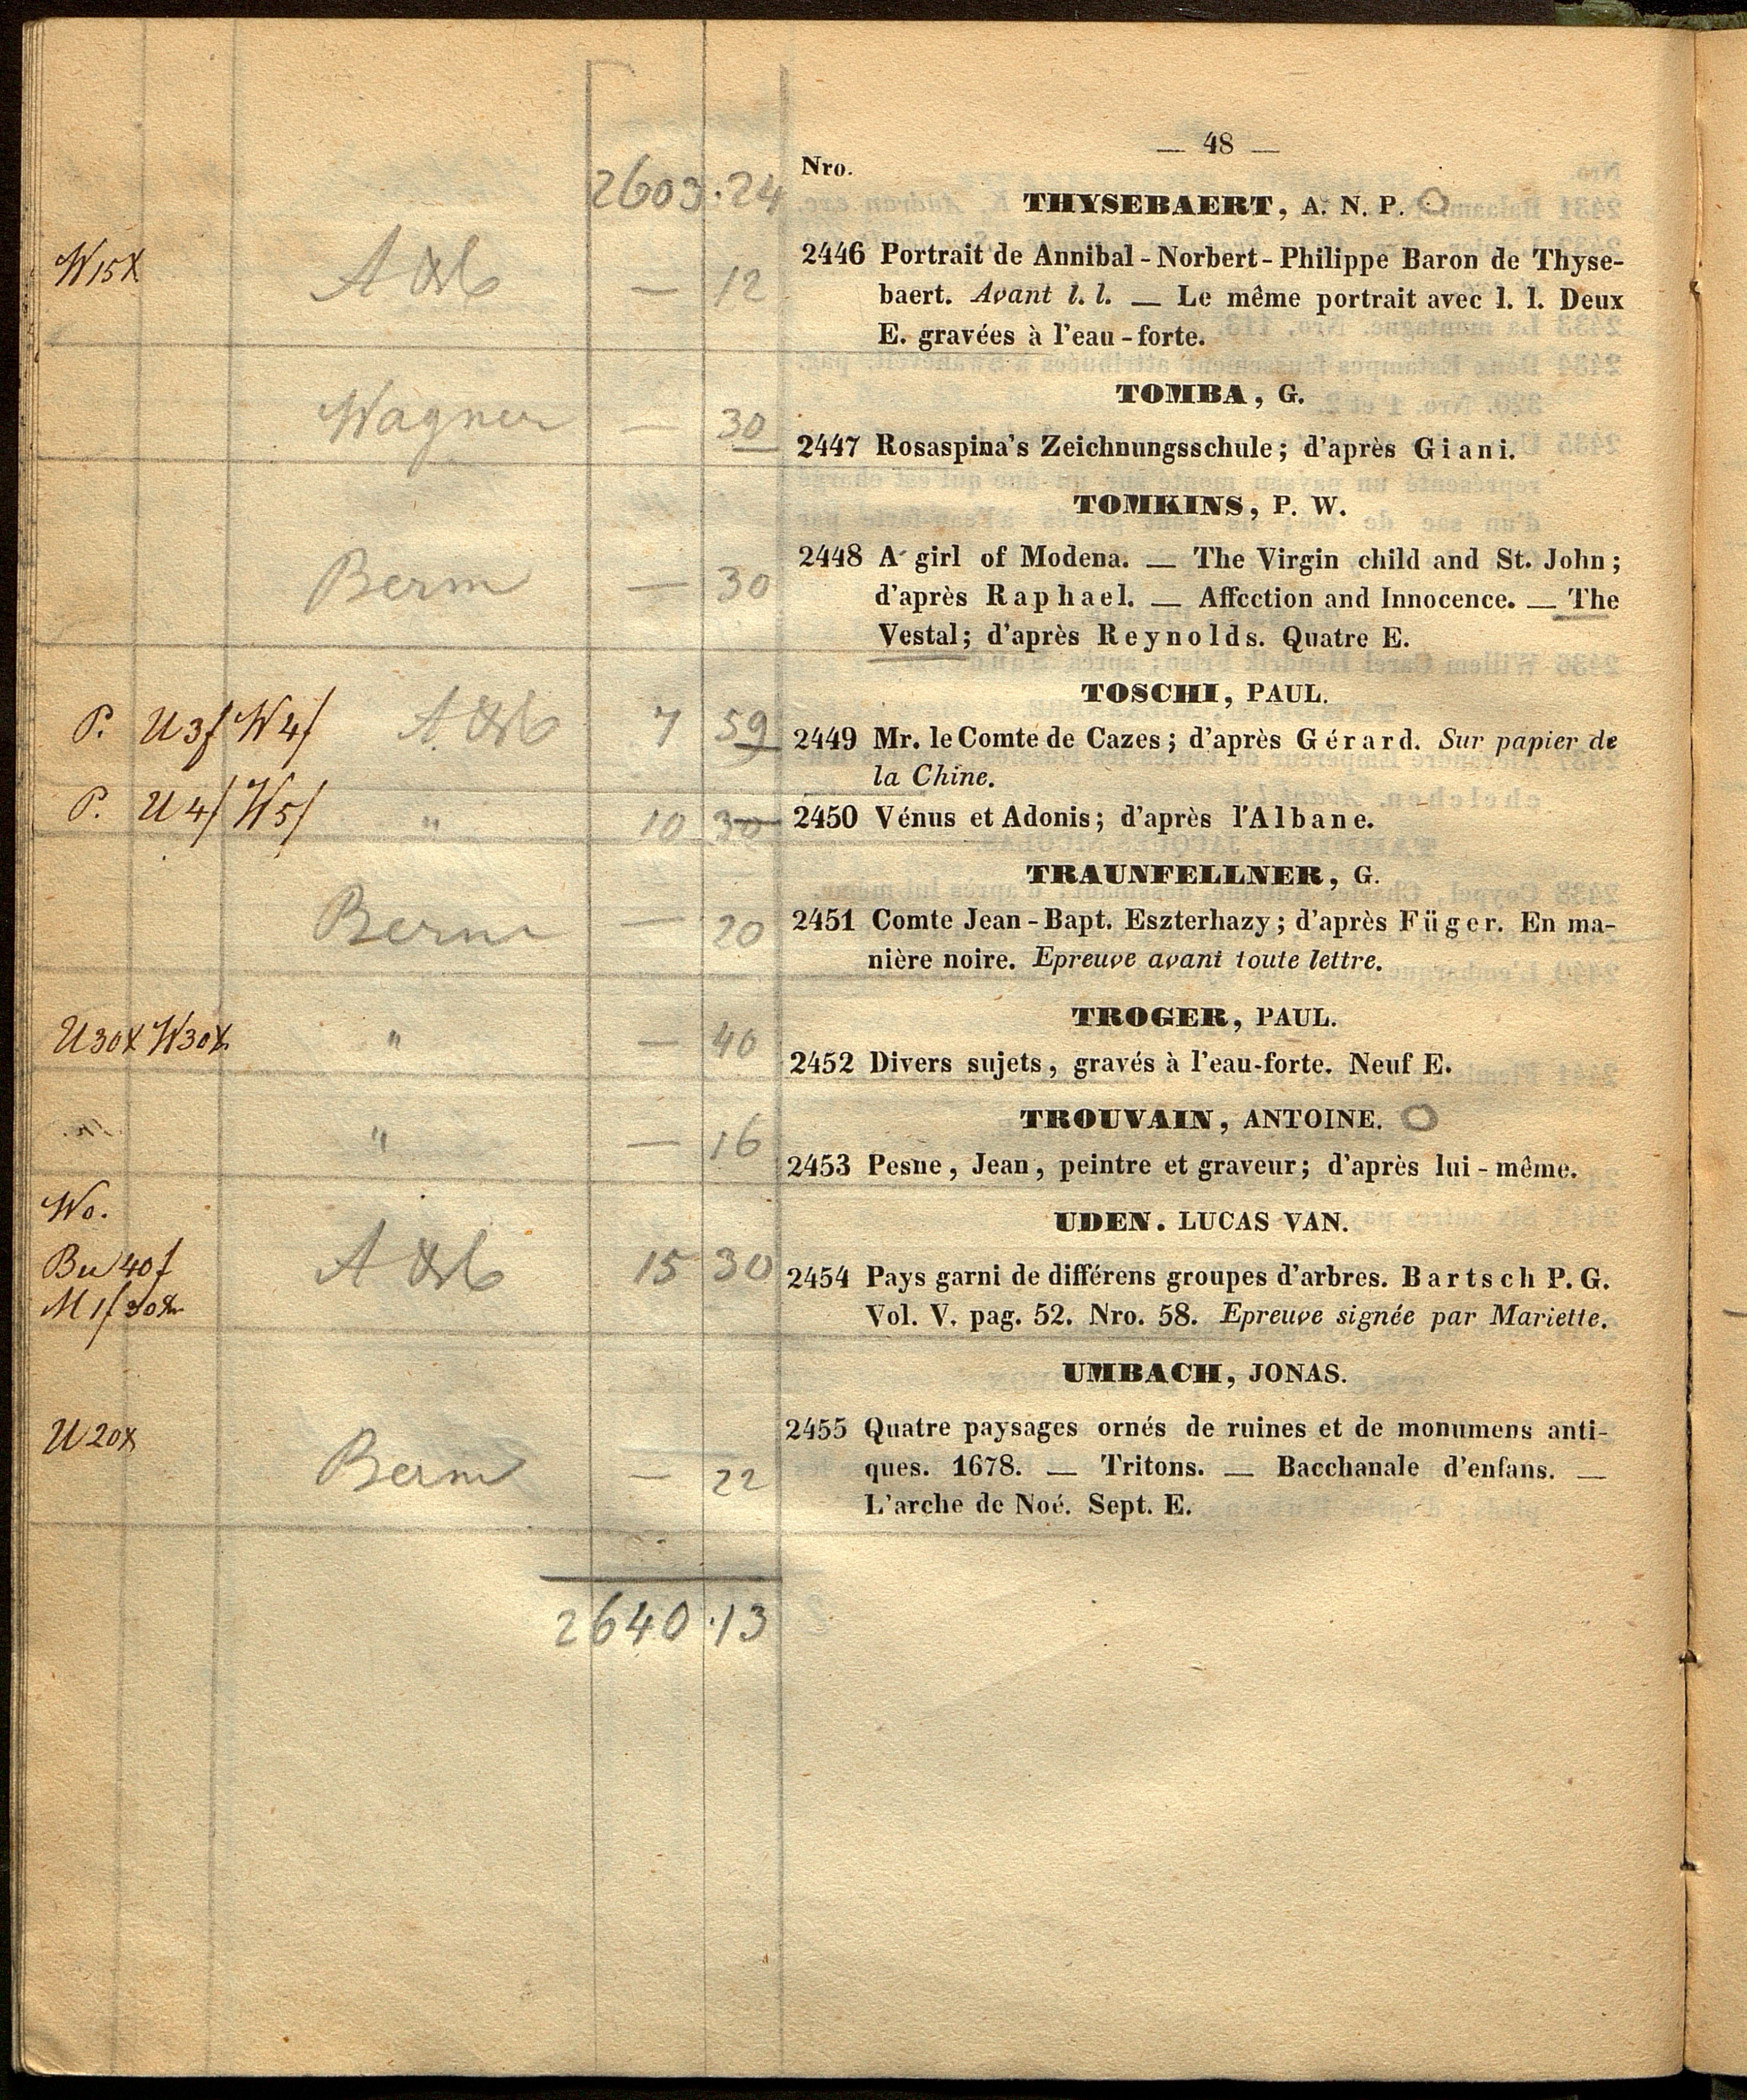 — 48 —
Nro.
2603 . 24
THYSEBAERT, A. N. P.
W 15 x
— 12
2446 Portrait de Annibal - Norbert - Philippe Baron de Thyse-
baert. Avant l. l. — Le même portrait avec l. l. Deux
E. gravées à l'eau - forte.
TOMBA, G.
Wagner — 30
2447 Rosaspina's Zeichnungsschule; d'après Giani.
TOMKINS, P. W.
Berm — 30
2448 A girl of Modena. — The Virgin child and St. John;
d'après Raphael. — Affection and Innocence. — The
Vestal; d'après Reynolds. Quatre E.
TOSCHI, PAUL.
P. U 3f W 4f 7 59
2449 Mr. le Comte de Cazes; d'après Gérard. Sur papier de
la Chine.
P. U 4f W 5f " 10 30
2450 Vénus et Adonis; d'après l'Albane.
TRAUNFELLNER, G.
Berm — 20
2451 Comte Jean - Bapt. Eszterhazy; d'après Füger. En ma-
nière noire. Epreuve avant toute lettre.
TROGER, PAUL.
U 30x W 30x " — 40
2452 Divers sujets, gravés à l'eau-forte. Neuf E.
TROUVAIN, ANTOINE.
" — 16
2453 Pesne, Jean, peintre et graveur; d'après lui - même.
UDEN. LUCAS VAN.
Wo.
Bu 40f
M 1f 30x
15 30
2454 Pays garni de différens groupes d'arbres. Bartsch P. G.
Vol. V. pag. 52. Nro. 58. Epreuve signée par Mariette.
UMBACH, JONAS.
U 20x Berm — 22
2455 Quatre paysages ornés de ruines et de monumens anti-
ques. 1678. — Tritons. — Bacchanale d'enfans. —
L'arche de Noé. Sept. E.
2640 . 13